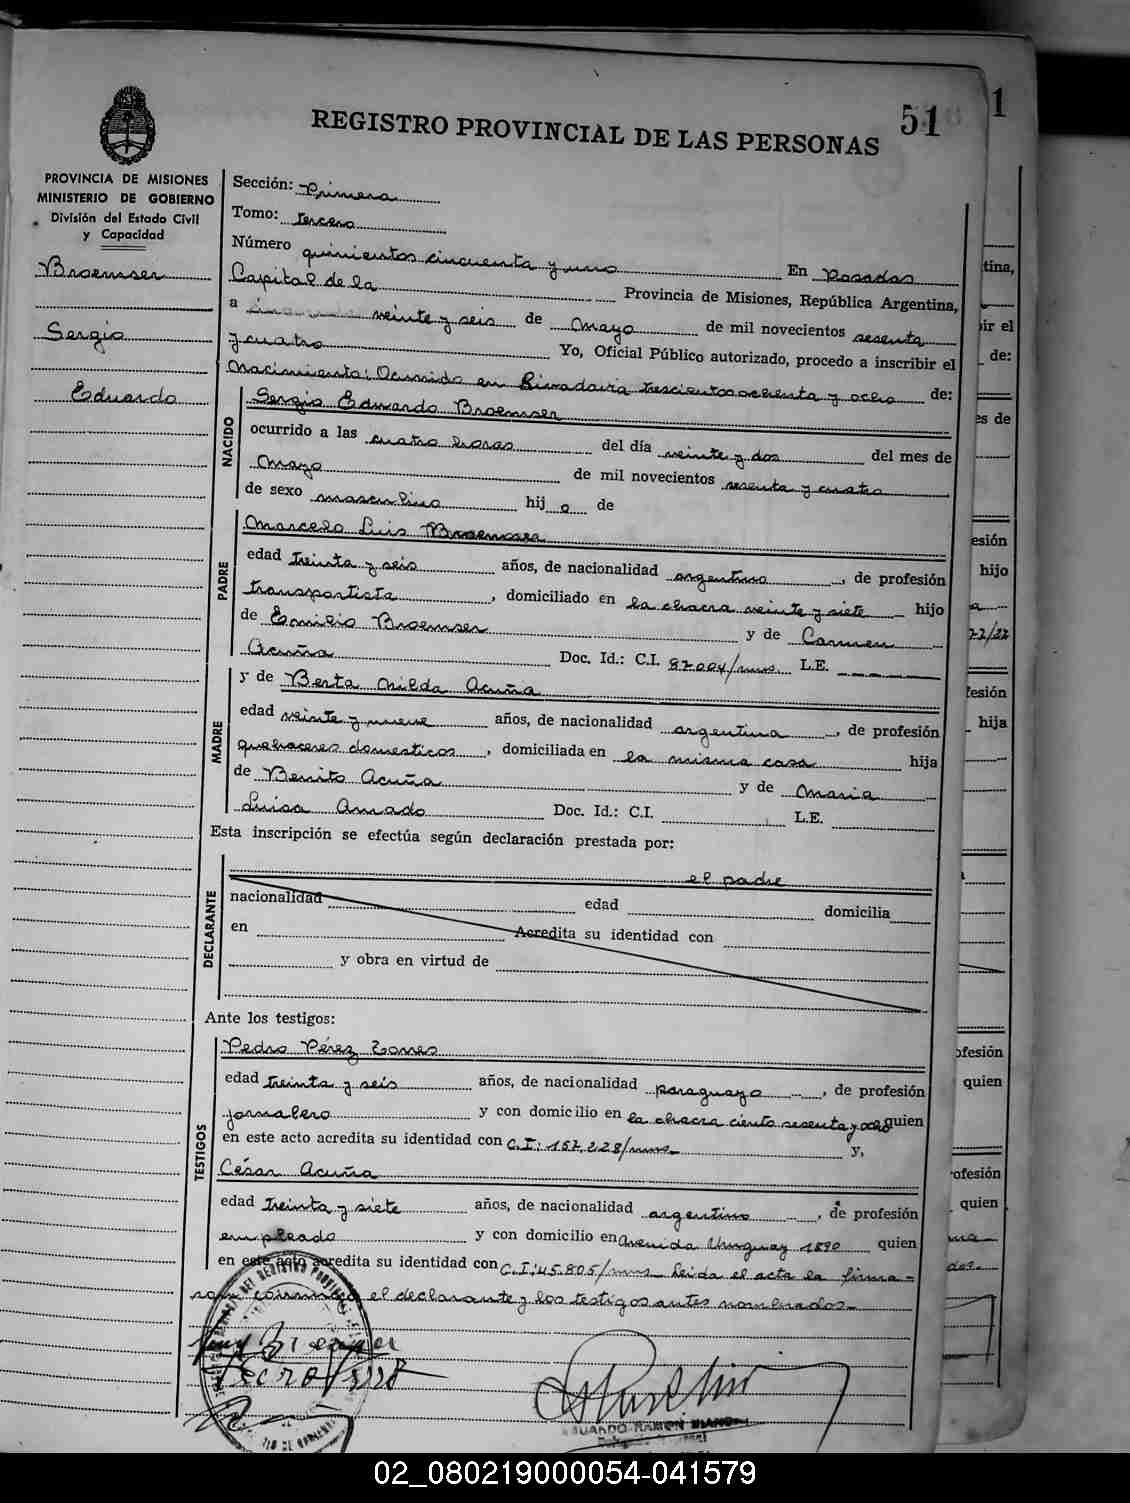 51
1
REGISTRO PROVINCIAL DE LAS PERSONAS
PROVINCIA DE MISIONES
MINISTERIO DE GOBIERNO
División del Estado Civil
y Capacidad
Broemser
Sergio
Eduardo
Sección: Primera
Tomo: tercero
Número quinientos cincuenta y uno En Posadas
Capital de la Provincia de Misiones, República Argentina,
a veinte y seis de mayo de mil novecientos sesenta
y cuatro Yo, Oficial Público autorizado, procedo a inscribir el
nacimiento: Ocurrido en Rivadavia trescientos ochenta y ocho de:
NACIDO
Sergio Eduardo Broemser
ocurrido a las cuatro horas del día veinte y dos del mes de
Mayo de mil novecientos sesenta y cuatro
de sexo masculino hijo de
PADRE
Marcelo Luis Broemser
edad treinta y seis años, de nacionalidad argentino, de profesión
transportista, domiciliado en la chacra veinte y siete hijo
de Emilio Broemser y de Carmen
Acuña Doc. Id.: C.I. 87004/mns. L.E.
MADRE
y de Berta Nilda Acuña
edad veinte y nueve años, de nacionalidad argentina, de profesión
quehaceres domesticos, domiciliada en la misma casa hija
de Benito Acuña y de Maria
Luisa Amado Doc. Id.: C.I. L.E.
Esta inscripción se efectúa según declaración prestada por:
DECLARANTE
el padre
nacionalidad edad domicilia
en Acredita su identidad con
y obra en virtud de
Ante los testigos:
TESTIGOS
Pedro Pérez Torres
edad treinta y seis años, de nacionalidad paraguayo, de profesión
jornalero y con domicilio en la chacra ciento sesenta y ocho quien
en este acto acredita su identidad con C.I: 157.228/mns. y,
César Acuña
edad treinta y siete años, de nacionalidad argentino, de profesión
empleado y con domicilio en Avenida Uruguay 1890 quien
en este acto acredita su identidad con C.I: 45.805/mns Leida el acta la firma-
ron conmigo el declarante y los testigos antes nombrados.
EDUARDO RAMON
02_080219000054-041579